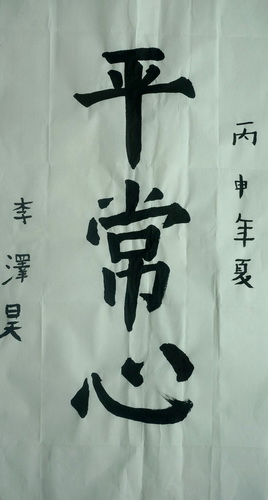 丙申年夏
平常心
李澤昊